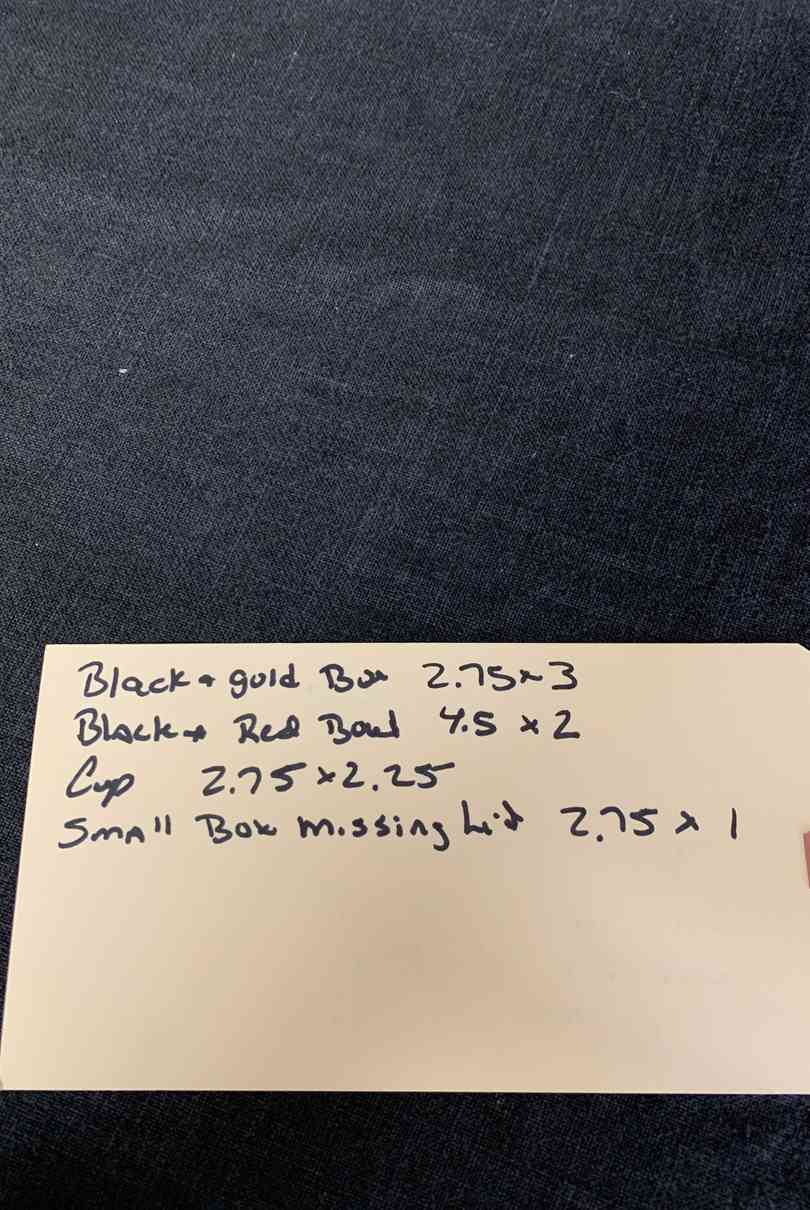 Black + gold Box 2.75 x 3
Black + Red Bowl 4.5 x 2
Cup 2.75 x 2.25
Small Box missing Lid 2.75 x 1